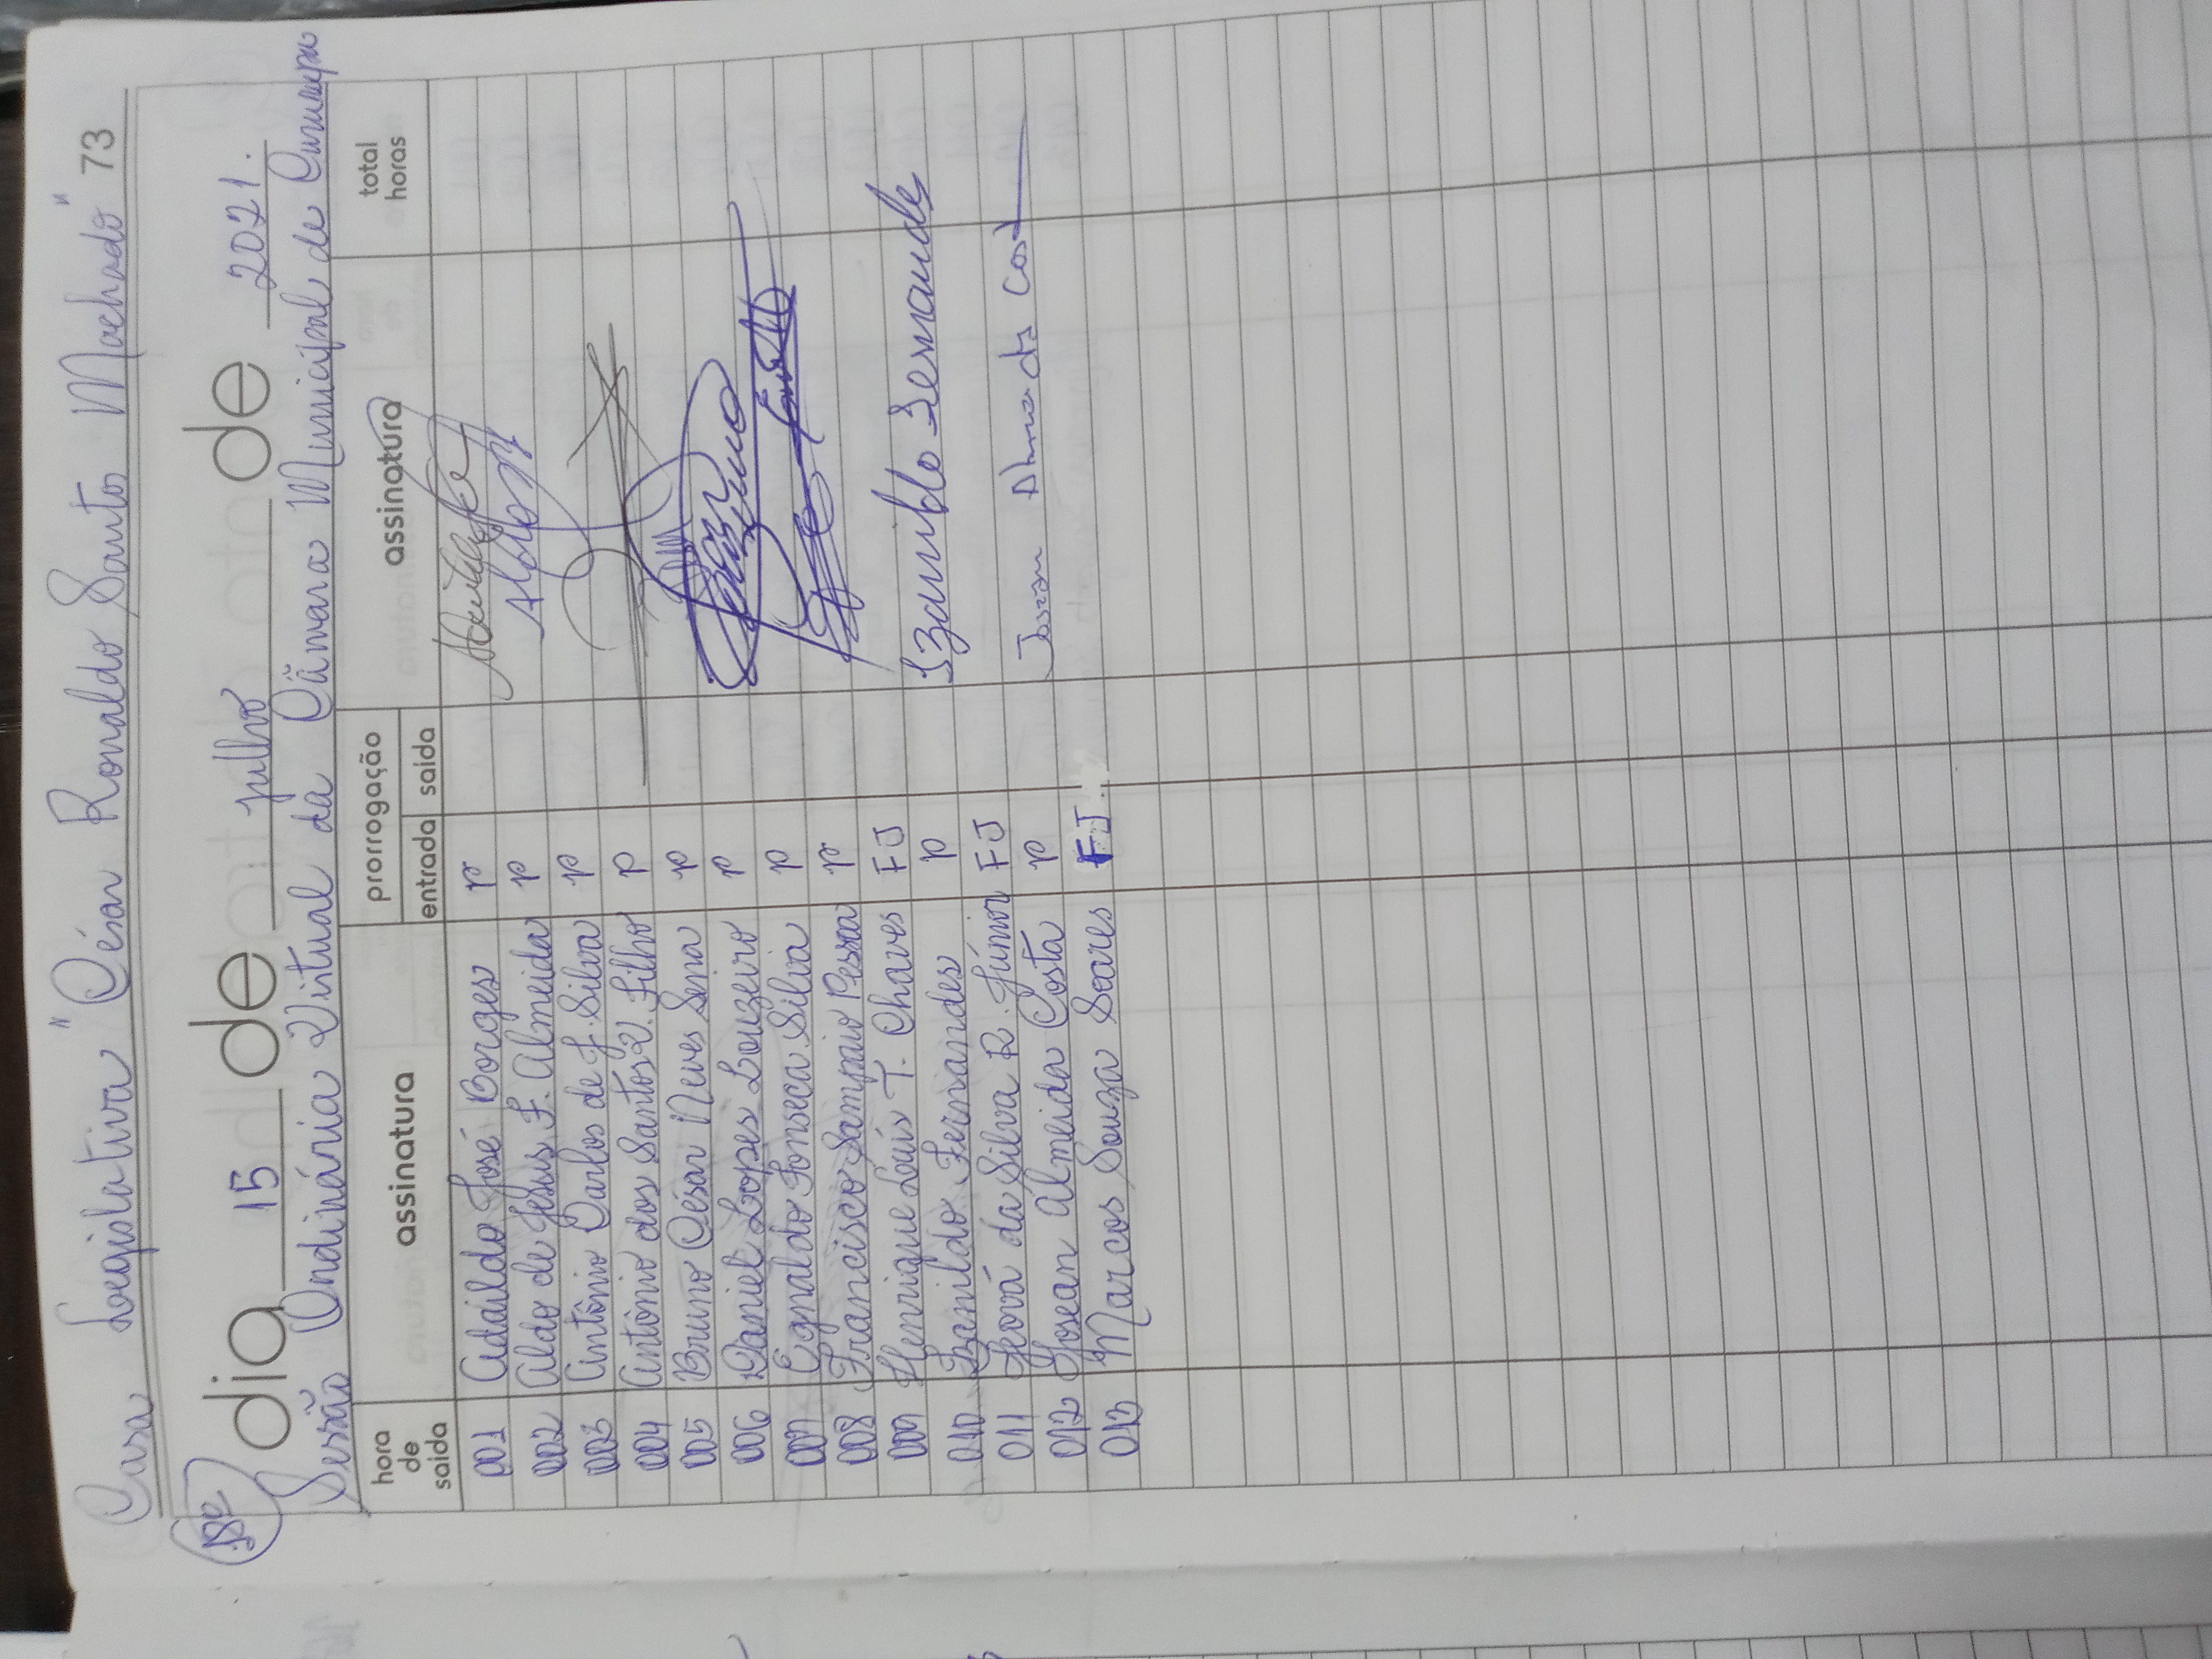 Casa Legislativa "César Ronaldo Santo Machado" 73
18ª dia 15 de julho de 2021.
Sessão Ordinária Virtual da Câmara Municipal de Cururupu
hora de saída assinatura prorrogação entrada saída assinatura total horas
001 Adaildo José Borges P
002 Aldo de Jesus F. Almeida P
003 Antônio Carlos de J. Silva P
004 Antônio dos Santos V. Filho P
005 Bruno César Neves Sena P
006 Daniel Lopes Louzeiro P
007 Egnaldo Fonseca Silva P
008 Francisco Sampaio Pessoa P
009 Henrique Luís T. Chaves FJ
010 Izanildo Fernandes P Izanildo Fernandes
011 Jeová da Silva R. Júnior FJ
012 Josean Almeida Costa P Josean Almeida Cost
013 Marcos Souza Soares FJ